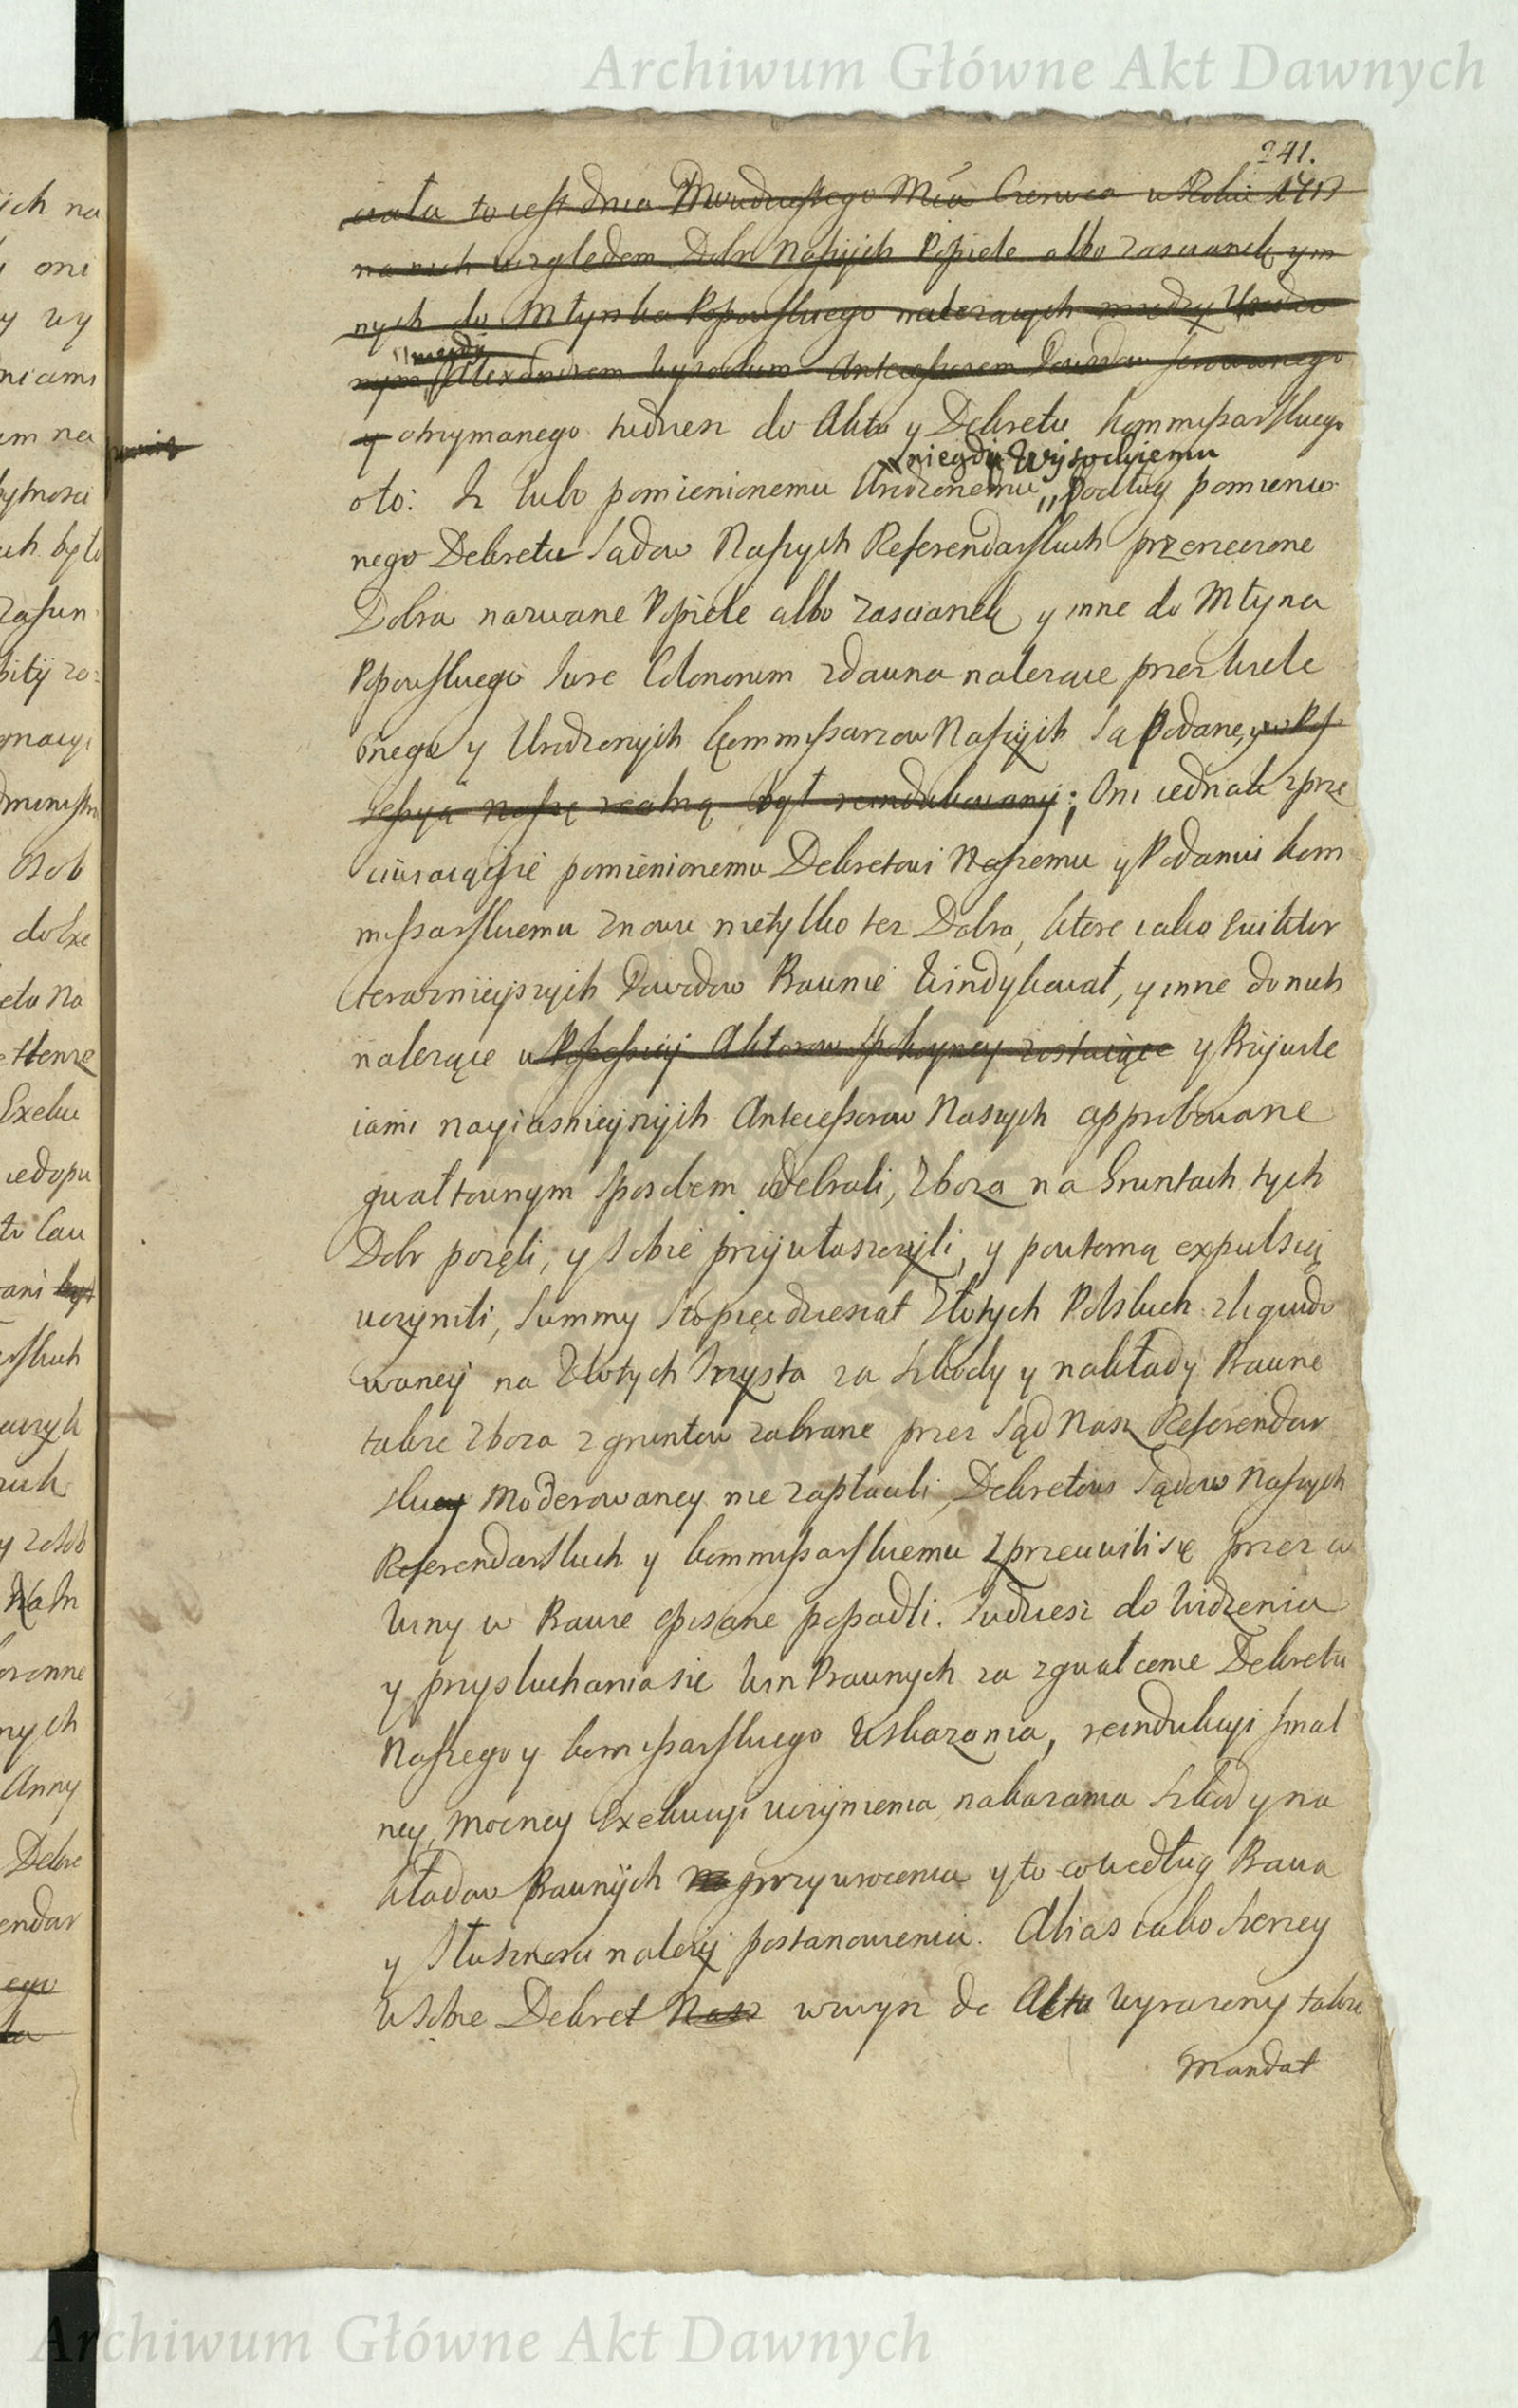 Archiwum Główne Akt Dawnych
241.
ciała to iest dnia Dwudziestego Mca Czerwca w Roku 17
na nich względem Dobr Naszych Popiele albo zascianek y in
nych do Młynka Popowskiego należących między Urodzo
nym Alexandrem Wysockim Antecessorem
y otrzymanego tudziesz do Aktu y Dekretu Kommissarskiego
niegdy Wysockiemu
oto: Iz lubo pomienionemu Urodzonemu podług pomienio
nego Dekretu Sądow Naszych Referendarskich przerzeczone
Dobra nazwane Popiele albo zascianek y inne do Młyna
Popowskiego Jure Colonorum zdawna należące przez Wiele
bnego y Urodzonych Kommissarzow Naszych są Podane, y w Pos
sessyą naszę realną był reindukowany; Oni iednak sprze
ciwiaiąc się pomienionemu Dekretowi Naszemu y Podaniu Kom
missarskiemu znowu nietylko tez Dobra, ktore iako Ewiktor
teraznieyszych Powodow Prawnie Windykował, y inne do nich
należące w Possessyi Aktorow spokoyney zostaiące y Przywile
iami nayiasnieyszych Antecessorow Naszych approbowane
gwałtownym sposobem odebrali, Zboza na Gruntach tych
Dobr pozęli, y sobie przywłaszczyli, y powtorną expulsią
uczynili, Summy Stopięcdziesiąt Złotych Polskich zlikwido
waney na Złotych Trzysta za szkody y nakłady Prawne
takze Zboza z gruntow zabrane przez Sąd Nasz Referendar
ski Moderowaney nie zapłacili, Dekretowi Sądow Naszych
Referendarskich y Kommissarskiemu zprzeciwili się przez co
Winy w Prawie opisane popadli. Tudziesz do Widzenia
y przysłuchania się Win Prawnych za zgwałcenie Dekretu
Naszego y Kommissarskiego Wskazania, reindukcyi Final
ney, Mocney Exekucyi uczynienia nakazania Szkod y na
kładow Prawnych przywrocenia y to co według Prawa
y Słusznosci należy postanowienia. Alias iako szerzey
w sobie Dekret Nasz wzwysz do Aktu Wyrazony takze
Mandat
Archiwum Główne Akt Dawnych